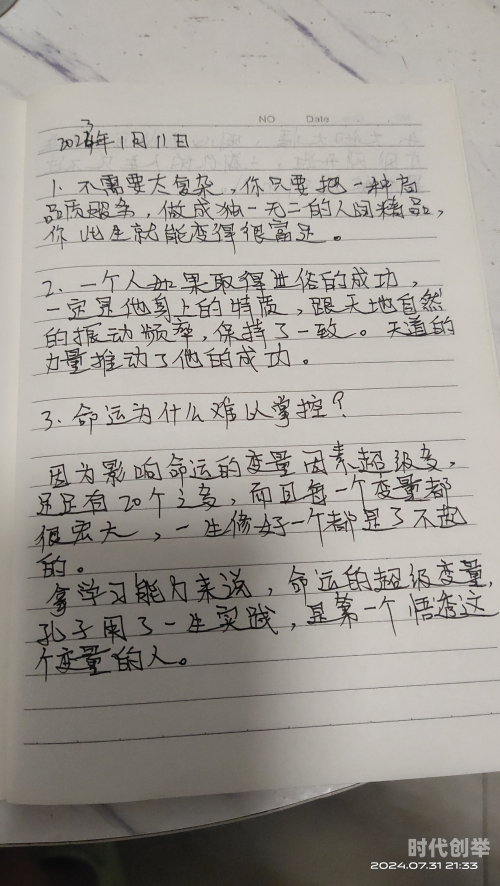 NO Date
2023年1月11日
1. 不需要太复杂，你只要把一种高
品质服务，做成独一无二的人间精品，
你此生就能变得很富足。
2. 一个人如果取得世俗的成功，
一定是他身上的特质，跟天地自然
的振动频率，保持了一致。天道的
力量推动了他的成功。
3. 命运为什么难以掌控？
因为影响命运的变量因素超级多，
足足有20个之多，而且每一个变量都
很宏大，一生修好一个都是了不起
的。
拿学习能力来说，命运的超级变量，
孔子用了一生实践，是第一个悟透这
个变量的人。
时代创举
2024.07.31 21:33